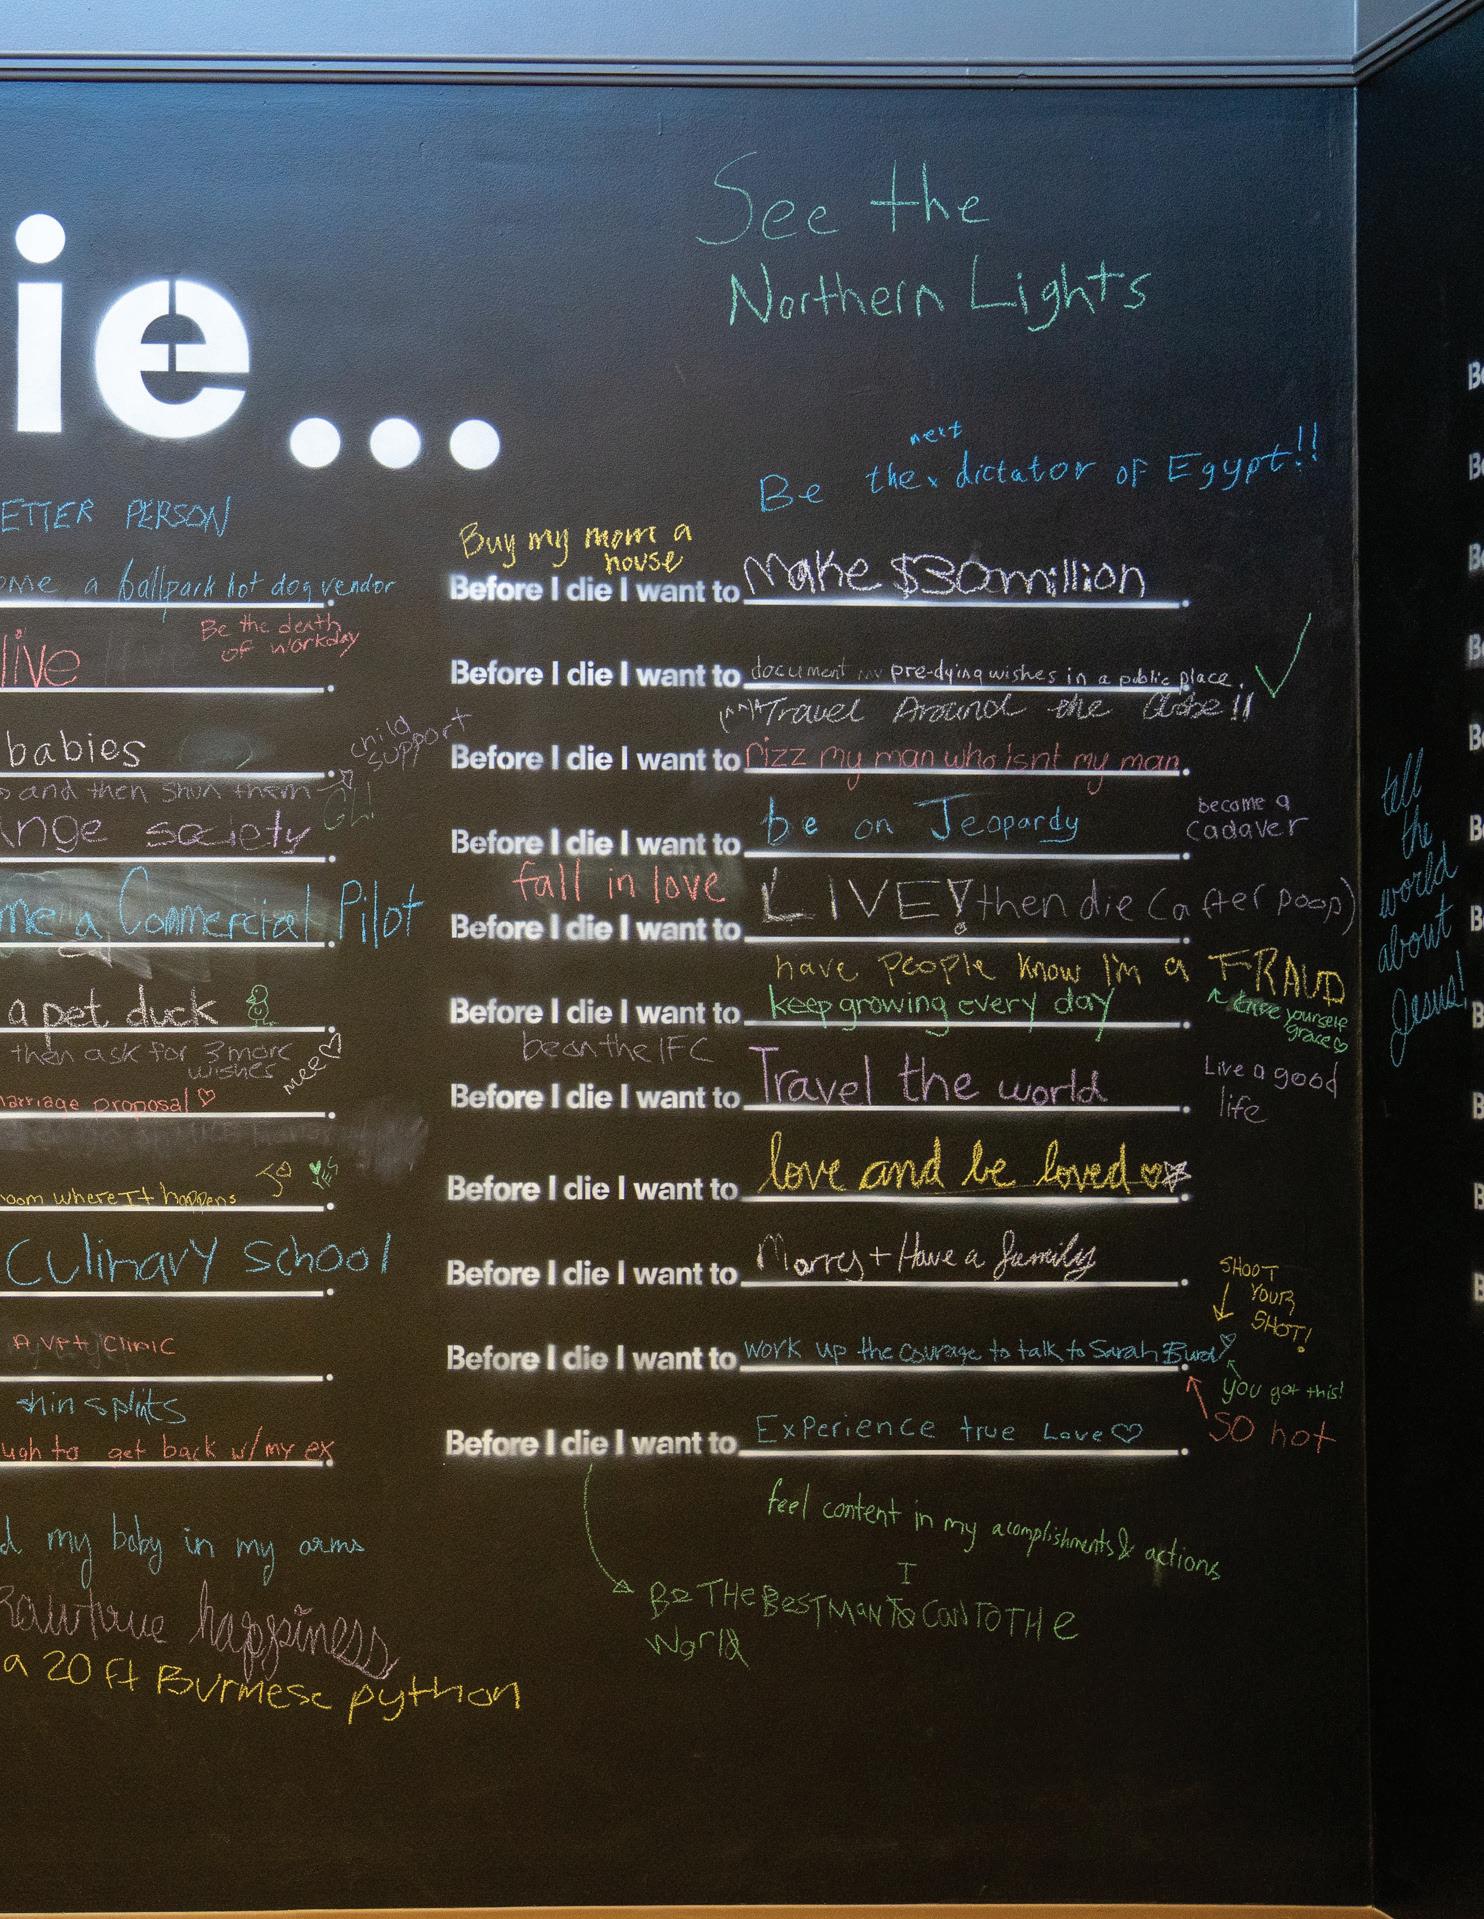 ie...
See the
Northern Lights
next
Be the dictator of Egypt!!
ETTER PERSON
ome a ballpark hot dog vendor
Be the death
of workday
live
babies
child
support
and then shun them
GL!
ange society
me a Commercial Pilot
a pet duck
then ask for 3 more
wishes
mee
arriage proposal
oom where It happens
YES
Culinary School
A Vet Clinic
shin splits
ugh to get back w/ my ex
d my baby in my arms
happiness
a 20 ft Burmese python
Buy my mom a
house
Before I die I want to Make $30million.
Before I die I want to document my pre-dying wishes in a public place.
Travel Around the Globe!!
Before I die I want to rizz my man who isnt my man.
Before I die I want to be on Jeopardy.
become a
cadaver
fall in love
Before I die I want to LIVE! then die (after poop).
have people know I'm a FRAUD
Before I die I want to keep growing every day.
yourself
grace
be on the IFC
Before I die I want to Travel the world.
Live a good
life
Before I die I want to love and be loved.
Before I die I want to Marry + Have a family.
SHOOT
YOUR
SHOT!
Before I die I want to work up the courage to talk to Sarah.
you got this!
SO hot
Before I die I want to Experience true Love.
feel content in my acomplishments & actions
I
Be THe BesT Man To Can To THe
World
tell
the
world
about
Jesus!
Be
Be
Be
Be
Be
Be
Be
B
B
B
B